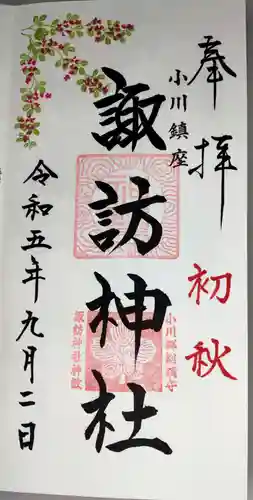 奉拝
初秋
小川鎮座
諏訪神社
令和五年九月二日
諏訪神社神紋